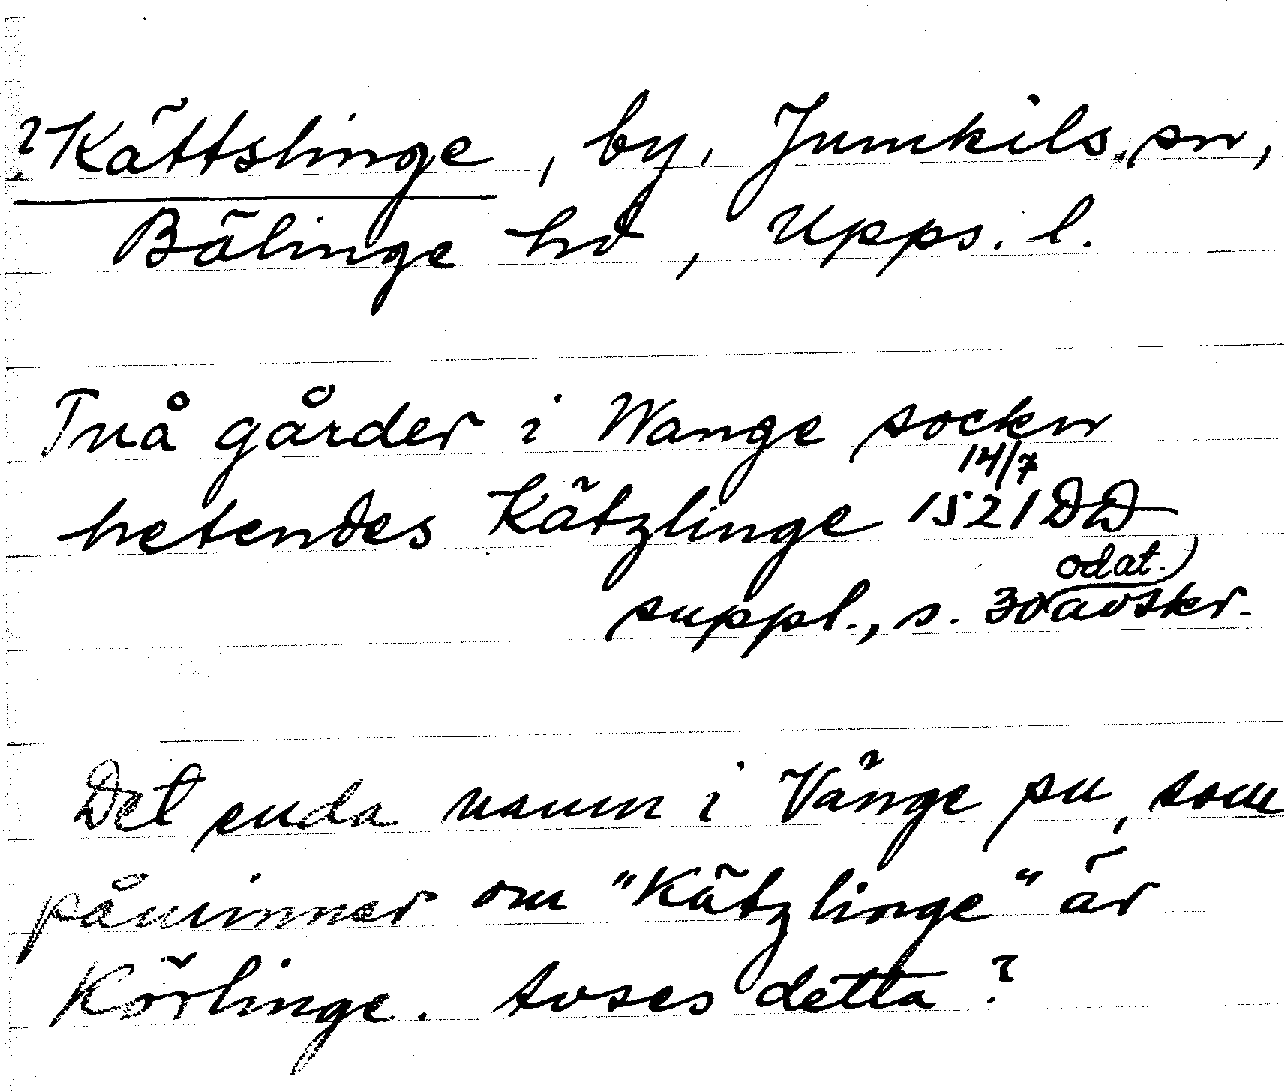 ? Kättslinge, by, Jumkils sn,
Bälinge hd, Upps. l.
Två gårder i Wange sockn
14/7
hetendes Kätzlinge 1521 DD
odat.
suppl., s. 30 avskr.
Det enda namn i Vänge sn, som
påminner om "Kätzlinge" är
Körlinge. Avses detta?